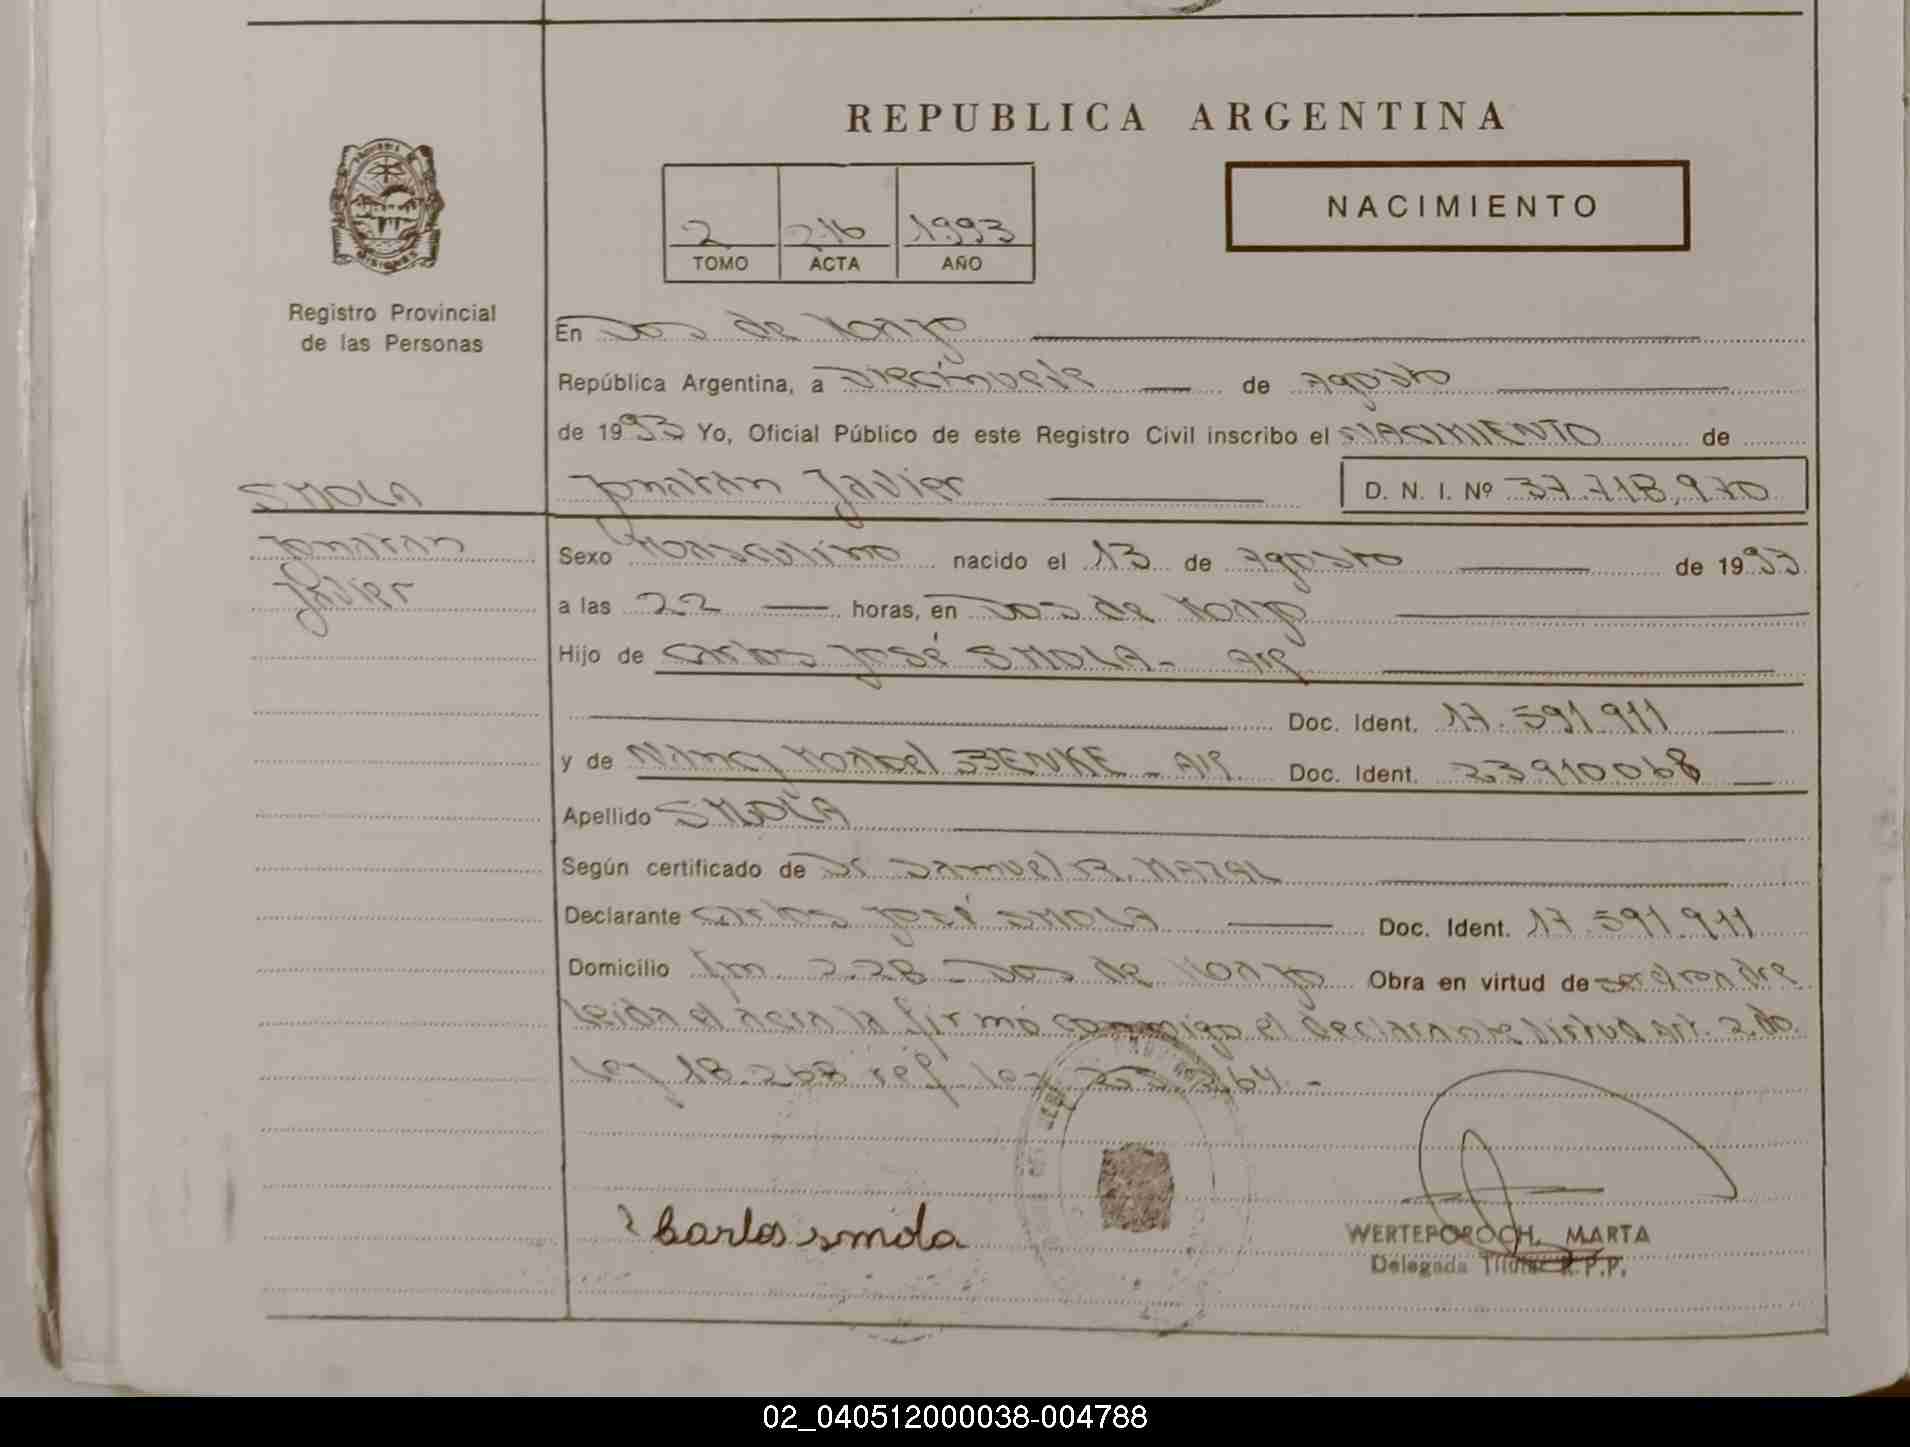 REPUBLICA ARGENTINA
NACIMIENTO
2 216 1993
TOMO ACTA AÑO
Registro Provincial
de las Personas
En Dos de Mayo
República Argentina, a Diecinueve de Agosto
de 1993 Yo, Oficial Público de este Registro Civil inscribo el NACIMIENTO de
SMOLA
Jonatan Javier D. N. I. Nº 37.718.970
Jonatan
Javier
Sexo Masculino nacido el 13 de Agosto de 1993
a las 22 horas, en Dos de Mayo
Hijo de Carlos José SMOLA - Arg
Doc. Ident. 17.591.911
y de Nancy Mabel BENKE - Arg Doc. Ident. 23910068
Apellido SMOLA
Según certificado de Dr Samuel R. MAZAL
Declarante Carlos José SMOLA Doc. Ident. 17.591.911
Domicilio Km 228 - Dos de Mayo Obra en virtud de ser el padre
Leida el acta la firmó conmigo el declarante Art. 2.
Ley 18.268 ref ley
Carlos smola
WERTEPOROCH, MARTA
Delegada Titular R.P.P.
02_040512000038-004788